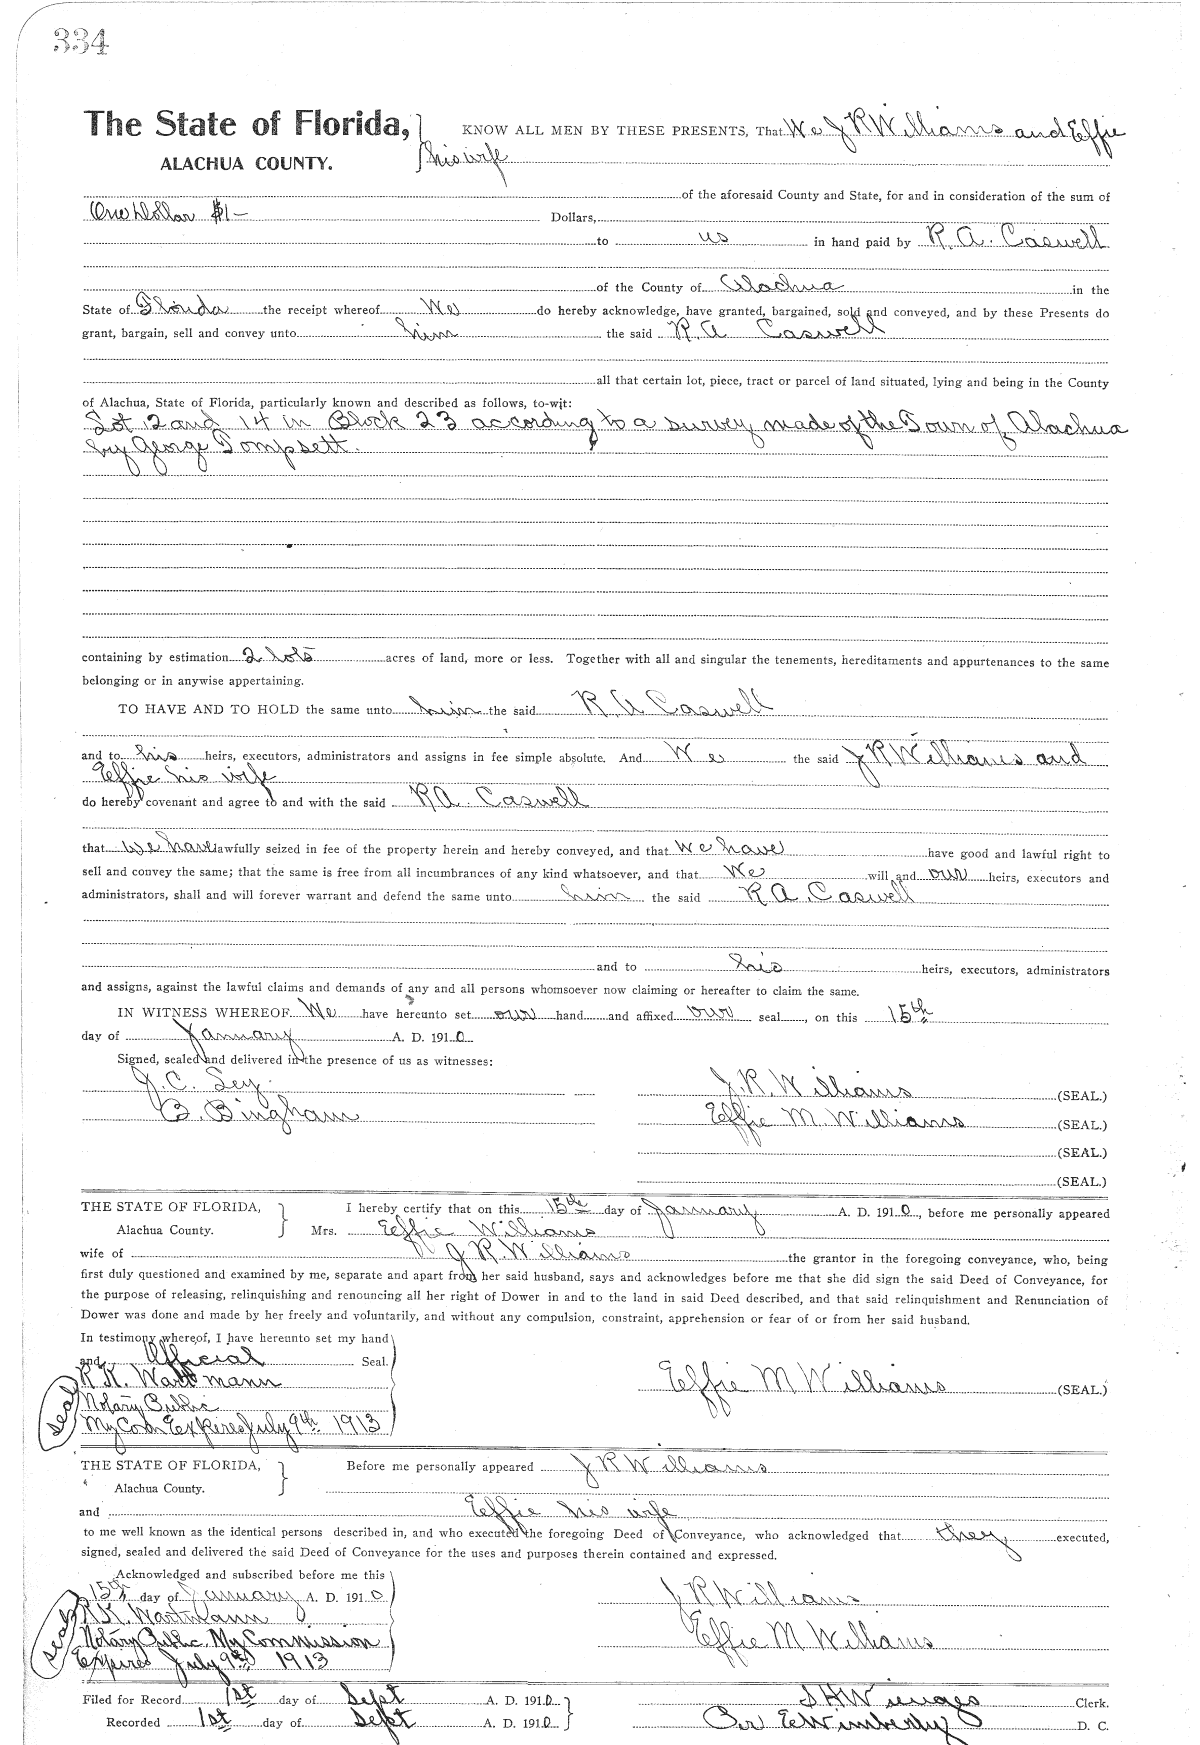 334
The State of Florida, KNOW ALL MEN BY THESE PRESENTS, That We J R Williams and Effie
ALACHUA COUNTY. his wife
of the aforesaid County and State, for and in consideration of the sum of
One Dollar $1– Dollars,
to us in hand paid by R. A. Caswell
of the County of Alachua in the
State of Florida the receipt whereof We do hereby acknowledge, have granted, bargained, sold and conveyed, and by these Presents do
grant, bargain, sell and convey unto him the said R A Caswell
all that certain lot, piece, tract or parcel of land situated, lying and being in the County
of Alachua, State of Florida, particularly known and described as follows, to-wit:
Lot 12 and 14 in Block 23 according to a survey made of the Town of Alachua
by George Tompsett.
containing by estimation 2 lots acres of land, more or less. Together with all and singular the tenements, hereditaments and appurtenances to the same
belonging or in anywise appertaining.
TO HAVE AND TO HOLD the same unto him the said R A Caswell
and to his heirs, executors, administrators and assigns in fee simple absolute. And We the said J R Williams and
Effie his wife
do hereby covenant and agree to and with the said R A. Caswell
that we have lawfully seized in fee of the property herein and hereby conveyed, and that we have have good and lawful right to
sell and convey the same; that the same is free from all incumbrances of any kind whatsoever, and that We will and our heirs, executors and
administrators, shall and will forever warrant and defend the same unto him the said R A. Caswell
and to his heirs, executors, administrators
and assigns, against the lawful claims and demands of any and all persons whomsoever now claiming or hereafter to claim the same.
IN WITNESS WHEREOF We have hereunto set our hand and affixed our seal, on this 15th
day of January A. D. 1910.
Signed, sealed and delivered in the presence of us as witnesses:
J. C. Ley. J. R. Williams (SEAL.)
B. Bingham Effie M. Williams (SEAL.)
(SEAL.)
(SEAL.)
THE STATE OF FLORIDA, I hereby certify that on this 15th day of January A. D. 1910, before me personally appeared
Alachua County. Mrs. Effie Williams
wife of J R. Williams the grantor in the foregoing conveyance, who, being
first duly questioned and examined by me, separate and apart from her said husband, says and acknowledges before me that she did sign the said Deed of Conveyance, for
the purpose of releasing, relinquishing and renouncing all her right of Dower in and to the land in said Deed described, and that said relinquishment and Renunciation of
Dower was done and made by her freely and voluntarily, and without any compulsion, constraint, apprehension or fear of or from her said husband.
In testimony whereof, I have hereunto set my hand
and Official Seal.
R. K. Wartmann Effie M Williams (SEAL.)
Seal Notary Public
My Com Expires July 9th 1913
THE STATE OF FLORIDA, Before me personally appeared J R Williams
Alachua County.
and Effie his wife
to me well known as the identical persons described in, and who executed the foregoing Deed of Conveyance, who acknowledged that they executed,
signed, sealed and delivered the said Deed of Conveyance for the uses and purposes therein contained and expressed.
Acknowledged and subscribed before me this
15th day of January A. D. 1910 J R Williams
R. K. Wartmann
Seal Notary Public My Commission Effie M Williams
Expires July 9th 1913
Filed for Record 1st day of Sept A. D. 1910 S H Wienges Clerk.
Recorded 1st day of Sept A. D. 1910. Per E Wimberly D. C.